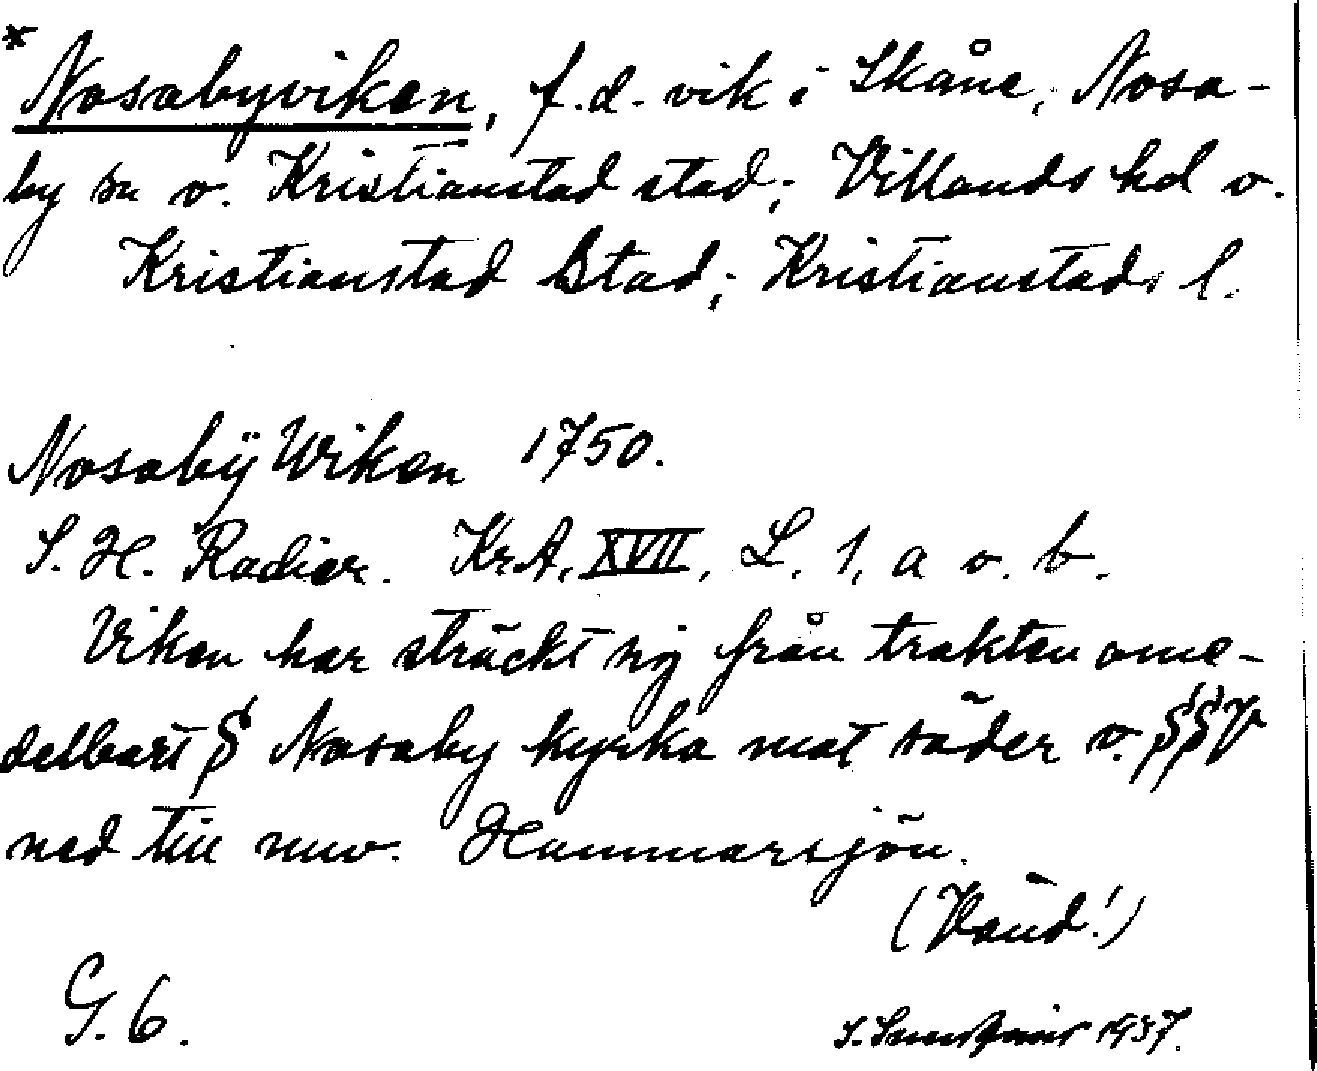 * Nosabyviken, f.d. vik i Skåne, Nosa-
by sn o. Kristianstad stad; Villands hd o.
Kristianstad Stad; Kristianstads l.
Nosabÿ Wiken 1750.
S. H. Radier. KrA, XVII, L. 1, a o. b.
Viken har sträckt sig från trakten ome-
delbart S Nosaby kyrka mot söder o. SSV
ned till nuv. Hammarsjön.
(Vänd!)
G. 6.
S. 1937.